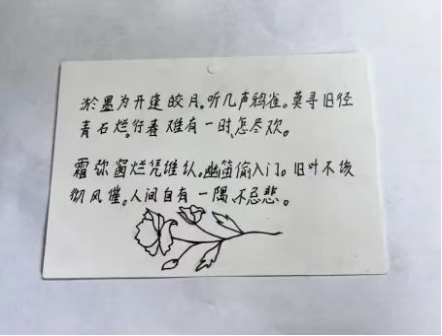 淤墨为开逢皎月。听几声鸦雀。莫寻旧径
青石烂。行春难有一时,怎尽欢。
霜弥窗烂凭谁认。幽笛偷入门。旧叶不堪
彻风催。人间自有一隅,不忌悲。